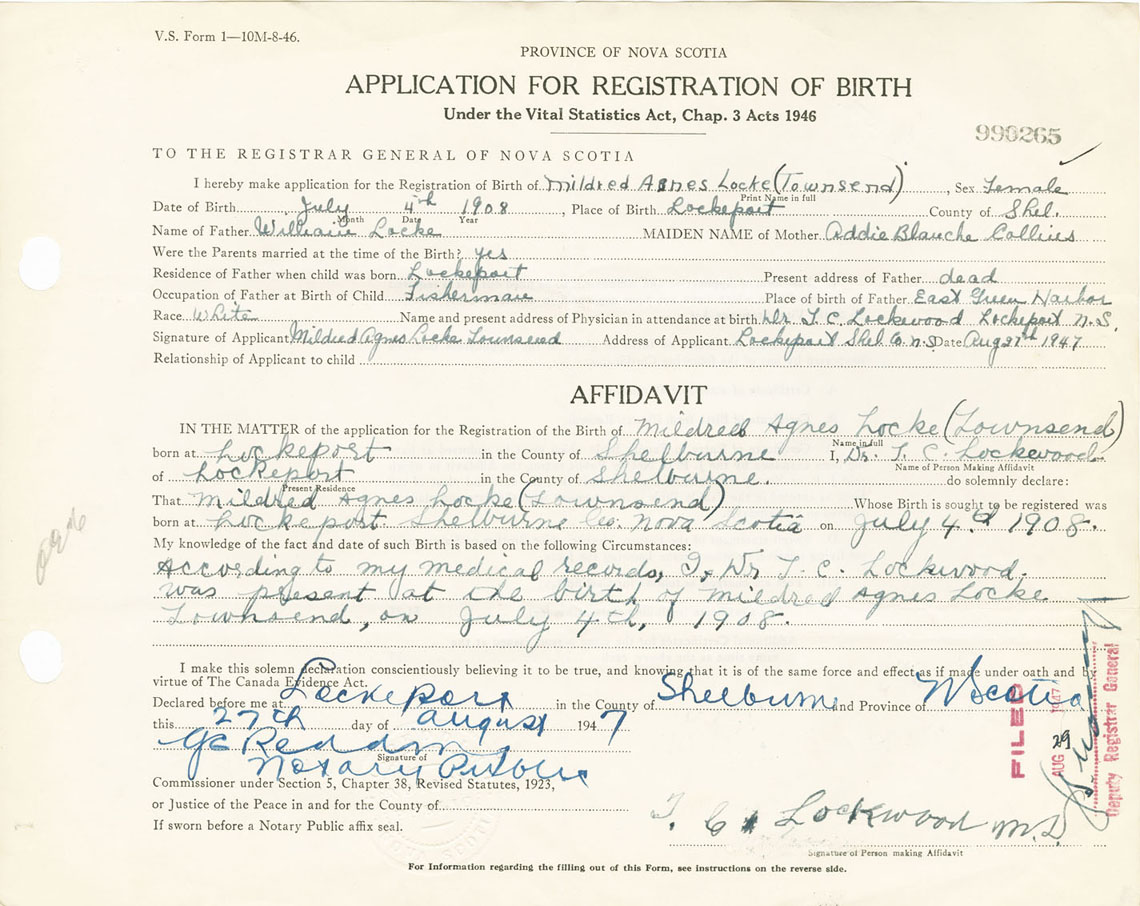 V.S. Form 1—10M-8-46.
PROVINCE OF NOVA SCOTIA
APPLICATION FOR REGISTRATION OF BIRTH
Under the Vital Statistics Act, Chap. 3 Acts 1946
990265
TO THE REGISTRAR GENERAL OF NOVA SCOTIA
I hereby make application for the Registration of Birth of Mildred Agnes Locke (Townsend), Sex Female
Print Name in full
Date of Birth July 4th 1908, Place of Birth Lockeport County of Shel.
Month Date Year
Name of Father William Locke MAIDEN NAME of Mother Addie Blanche Collins
Were the Parents married at the time of the Birth? yes
Residence of Father when child was born Lockeport Present address of Father dead
Occupation of Father at Birth of Child Fisherman Place of birth of Father East Green Harbor
Race White Name and present address of Physician in attendance at birth Dr T. C. Lockwood Lockeport N.S.
Signature of Applicant Mildred Agnes Locke Townsend Address of Applicant Lockeport Shel Co N.S. Date Aug 27th 1947
Relationship of Applicant to child
AFFIDAVIT
IN THE MATTER of the application for the Registration of the Birth of Mildred Agnes Locke (Townsend)
Name in full
born at Lockeport in the County of Shelburne I, Dr. T. C. Lockewood
Name of Person Making Affidavit
of Lockeport in the County of Shelburne. do solemnly declare:
Present Residence
That Mildred Agnes Locke (Townsend) Whose Birth is sought to be registered was
born at Lockeport Shelburne Co. Nova Scotia on July 4th 1908.
My knowledge of the fact and date of such Birth is based on the following Circumstances:
According to my medical records, I, Dr T. C. Lockwood.
was present at the birth of Mildred Agnes Locke
Townsend, on July 4th, 1908.
I make this solemn declaration conscientiously believing it to be true, and knowing that it is of the same force and effect as if made under oath and by
virtue of The Canada Evidence Act.
Declared before me at Lockeport in the County of Shelburne and Province of N Scotia
this 27th day of August 1947
Signature of
Notary Public
Commissioner under Section 5, Chapter 38, Revised Statutes, 1923,
or Justice of the Peace in and for the County of
If sworn before a Notary Public affix seal.
T. C. Lockwood M.D.
Signature of Person making Affidavit
For Information regarding the filling out of this Form, see instructions on the reverse side.
FILED
AUG 29 1947
Deputy Registrar General